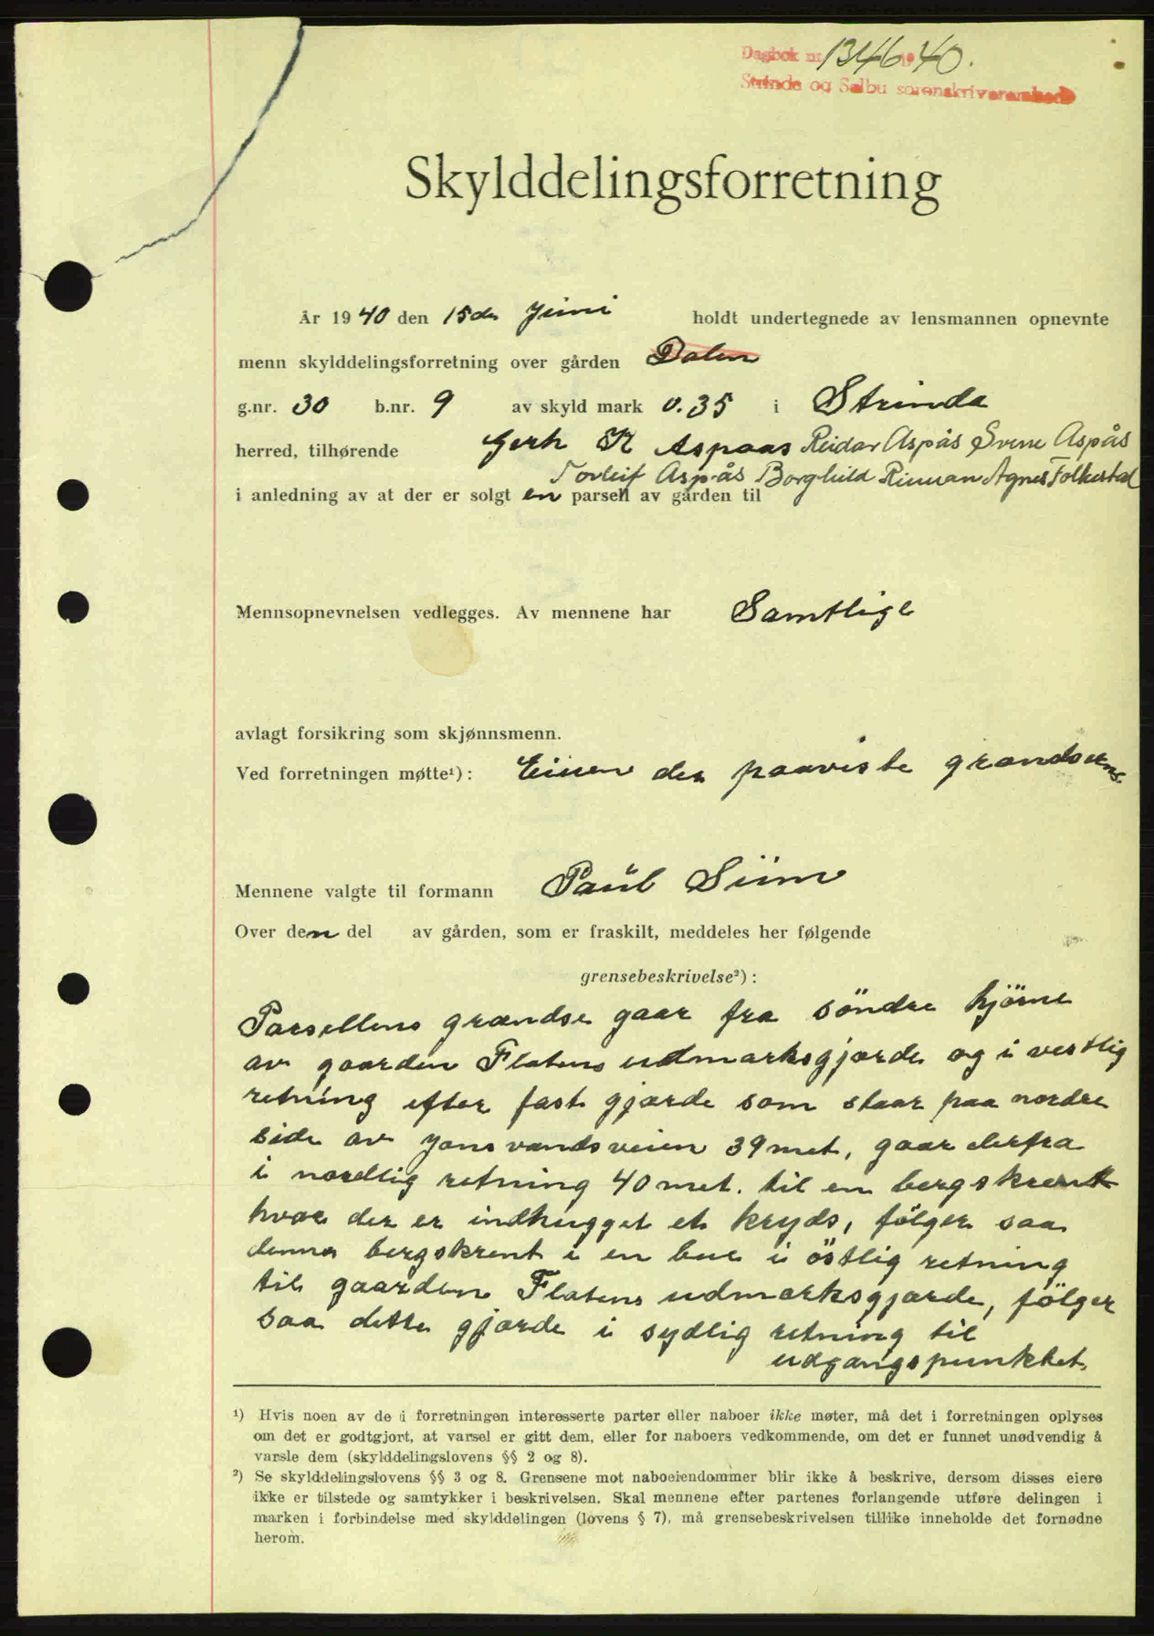 Dagbok nr. 1346 1940.
Strinda og Selbu sorenskriverembede
Skylddelingsforretning
År 1940 den 15de Juni holdt undertegnede av lensmannen opnevnte
menn skylddelingsforretning over gården Dalen
g.nr. 30 b.nr. 9 av skyld mark 0.35 i Strinda
herred, tilhørende Gerh K Aspaas Reidar Aspås Sverre Aspås
Torleif Aspås Borghild Rinnan Agnes Folkestad
i anledning av at der er solgt en parsell av gården til
Mennsopnevnelsen vedlegges. Av mennene har Samtlige
avlagt forsikring som skjønnsmenn.
Ved forretningen møtte¹): Eieren der paaviste grændserne.
Mennene valgte til formann Paul Siim
Over den del av gården, som er fraskilt, meddeles her følgende
grensebeskrivelse²):
Parsellens grændse gaar fra söndre hjörne
av gaarden Flatens udmarksgjærde og i vestlig
retning efter fast gjærde som staar paa nordre
side av Jonsvandsveien 39 met, gaar derfra
i nordlig retning 40 met. til en bergskrent
hvor der er indhugget et kryds, fölger saa
denne bergskrent i en bue i östlig retning
til gaarden Flatens udmarksgjærde, fölger
saa dette gjærde i sydlig retning til
udgangspunktet.
¹) Hvis noen av de i forretningen interesserte parter eller naboer ikke møter, må det i forretningen oplyses
om det er godtgjort, at varsel er gitt dem, eller for naboers vedkommende, om det er funnet unødvendig å
varsle dem (skylddelingslovens §§ 2 og 8).
²) Se skylddelingslovens §§ 3 og 8. Grensene mot naboeiendommer blir ikke å beskrive, dersom disses eiere
ikke er tilstede og samtykker i beskrivelsen. Skal mennene efter partenes forlangende utføre delingen i
marken i forbindelse med skylddelingen (lovens § 7), må grensebeskrivelsen tillike inneholde det fornødne
herom.